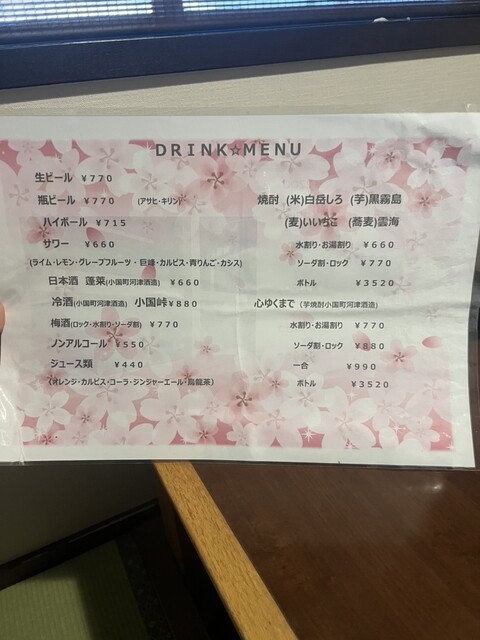 DRINK☆MENU
生ビール ¥770
瓶ビール ¥770 (アサヒ・キリン)
ハイボール ¥715
サワー ¥660
(ライム・レモン・グレープフルーツ・巨峰・カルピス・青りんご・カシス)
日本酒 蓬莱(小国町河津酒造) ¥660
冷酒(小国町河津酒造) 小国峠¥880
梅酒(ロック・水割り・ソーダ割) ¥770
ノンアルコール ¥550
ジュース類 ¥440
(オレンジ・カルピス・コーラ・ジンジャーエール・烏龍茶)
焼酎 (米)白岳しろ (芋)黒霧島
(麦)いいちこ (蕎麦)雲海
水割り・お湯割り ¥660
ソーダ割・ロック ¥770
ボトル ¥3520
心ゆくまで (芋焼酎小国町河津酒造)
水割り・お湯割り ¥770
ソーダ割・ロック ¥880
一合 ¥990
ボトル ¥3520